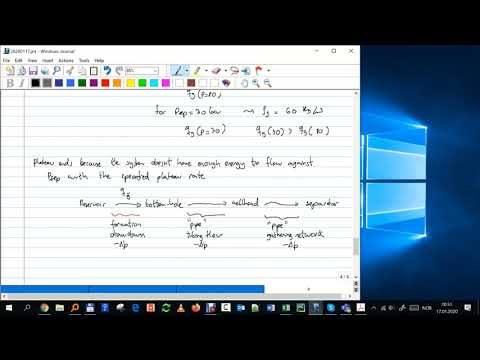 20200117.jnt - Windows Journal
File Edit View Insert Actions Tools Help
qg (p=10)
for Psep = 30 bar ⟿ ρg = 60 kg/m3
qg (p=30) qg (30) > qg (10)
Plateau ends because the system doesn't have enough energy to flow against
Psep with the specified plateau rate
qg
Reservoir → bottom-hole → wellhead → separator
formation "pipe" "pipe"
drawdown tubing flow gathering network
-Δp -Δp -Δp
NOR
17.01.2020